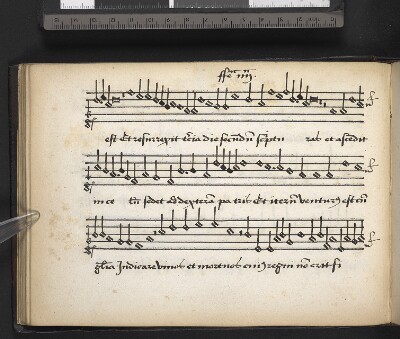 est Et resurrexit t'cia die secu'du' sc'ptu ras et asce'dit
in ce lu' sedet ad dextera' pa tris Et iteru' ventur9 est cu'
gl'ia Judicare vivos et mortuos cui9 regni no' erit fi